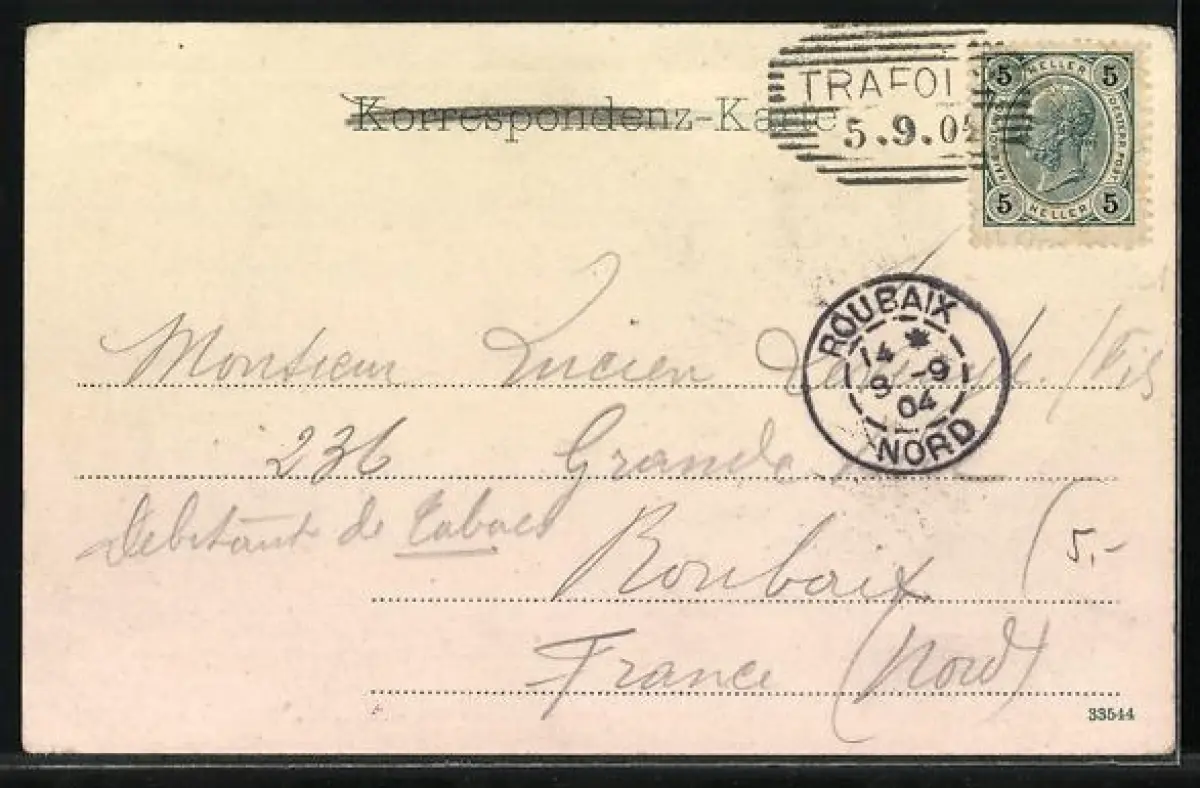 Korrespondenz-Karte
TRAFOI
5.9.04
5 HELLER 5
5 HELLER 5
ROUBAIX
14 *
8 -9
04
NORD
Monsieur Lucien /Fils
236 Grande
Debitant de Tabacs
Roubaix
5,-
France (Nord)
33544